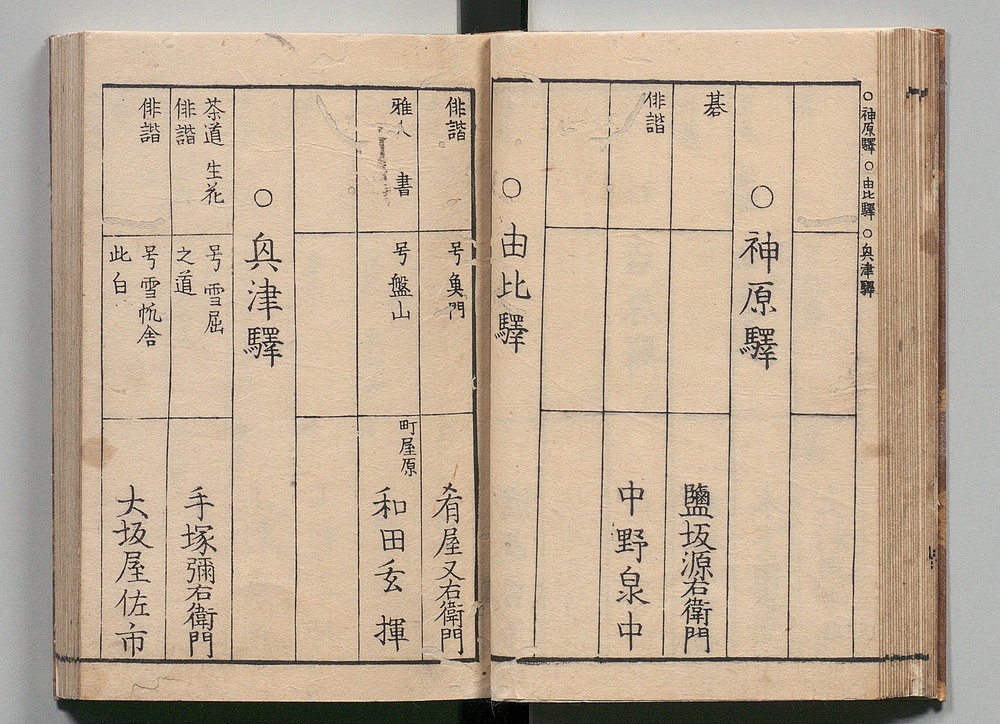 ○神原驛○由比驛○奥津驛
○神原驛
碁 鹽坂源右衛門
俳諧 中野泉中
○由比驛
俳諧 号奠門 肴屋又右衛門
雅人 書 号盤山 町屋原 和田玄揮
○奥津驛
茶道 生花
俳諧 号雪屈
之道 手塚彌右衛門
俳諧 号雪帆舎
此白 大坂屋佐市